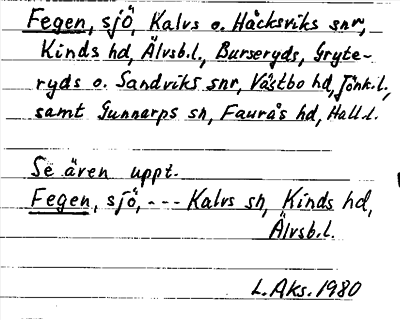 Fegen, sjö, Kalvs o. Håcksviks snr,
Kinds hd, Älvsb.l., Burseryds, Gryte-
ryds o. Sandviks snr, Västbo hd, Jönk.l.,
samt Gunnarps sn, Faurås hd, Hall.l.
Se även uppt.
Fegen, sjö, --- Kalvs sn, Kinds hd,
Älvsb.l.
L.Aks. 1980